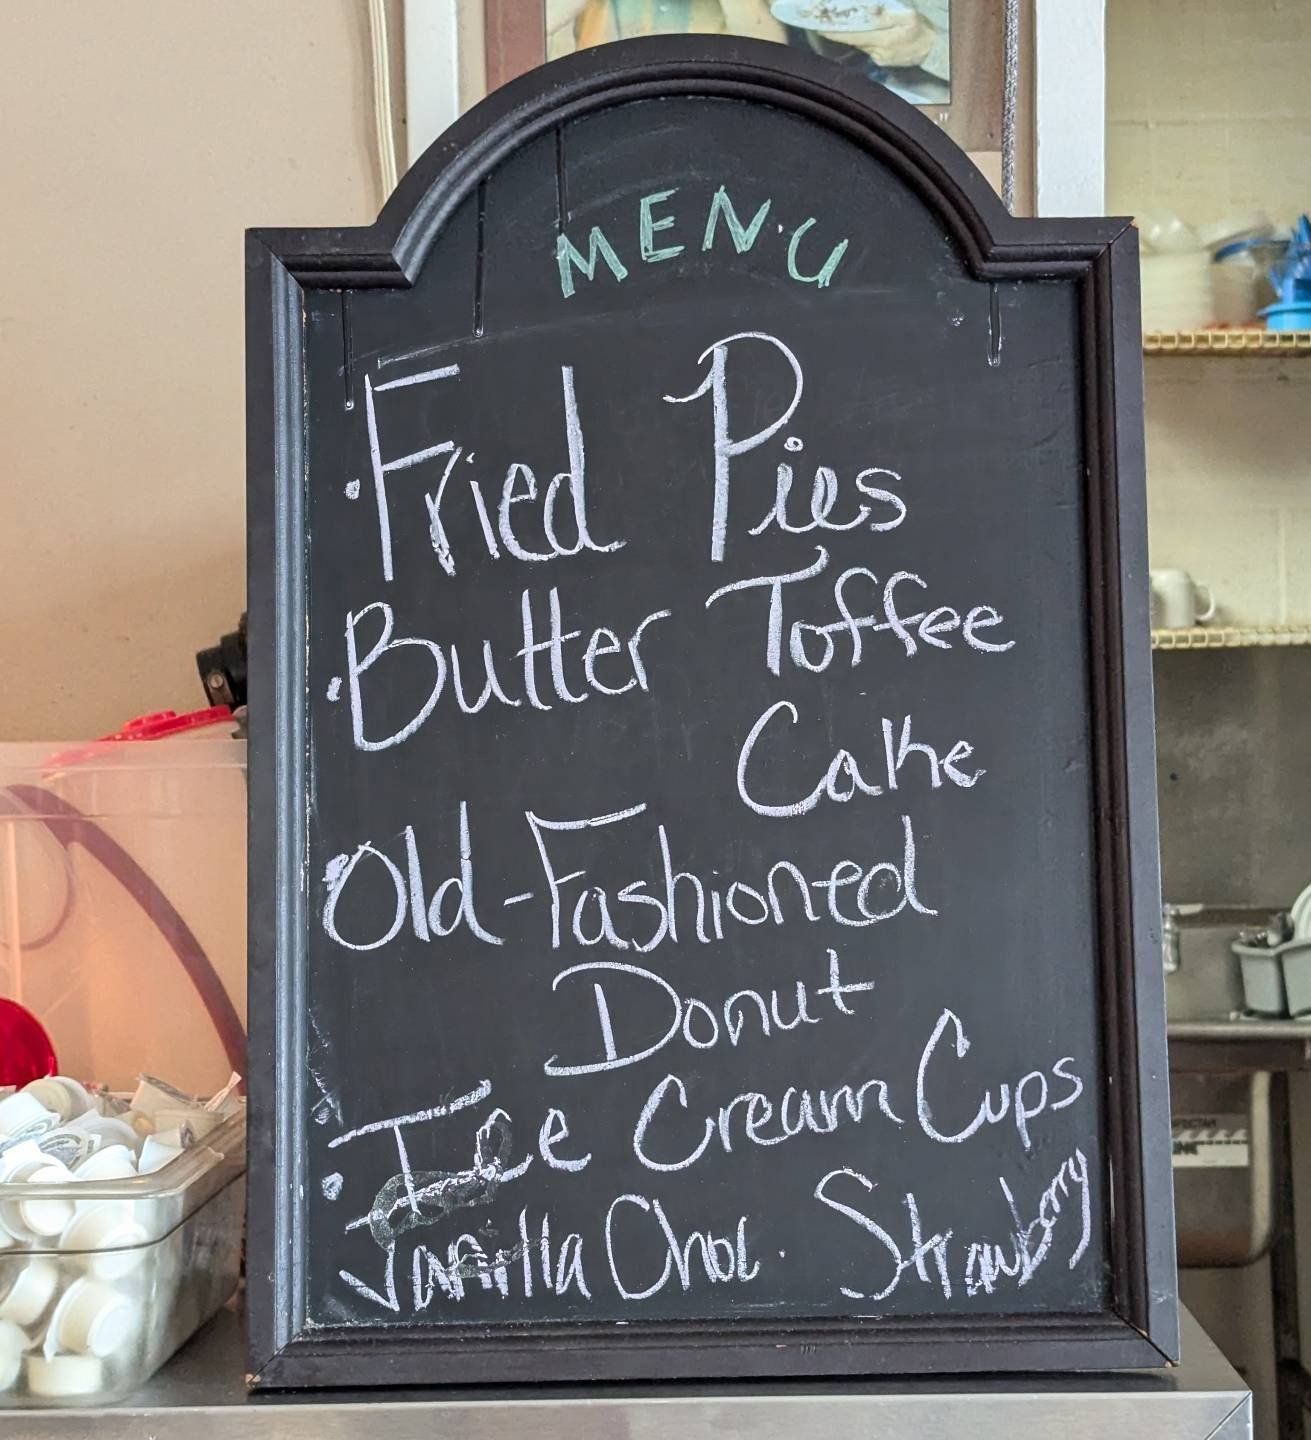 MENU
· Fried Pies
· Butter Toffee
Cake
· Old-Fashioned
Donut
· Ice Cream Cups
Vanilla Choc. Strawberry